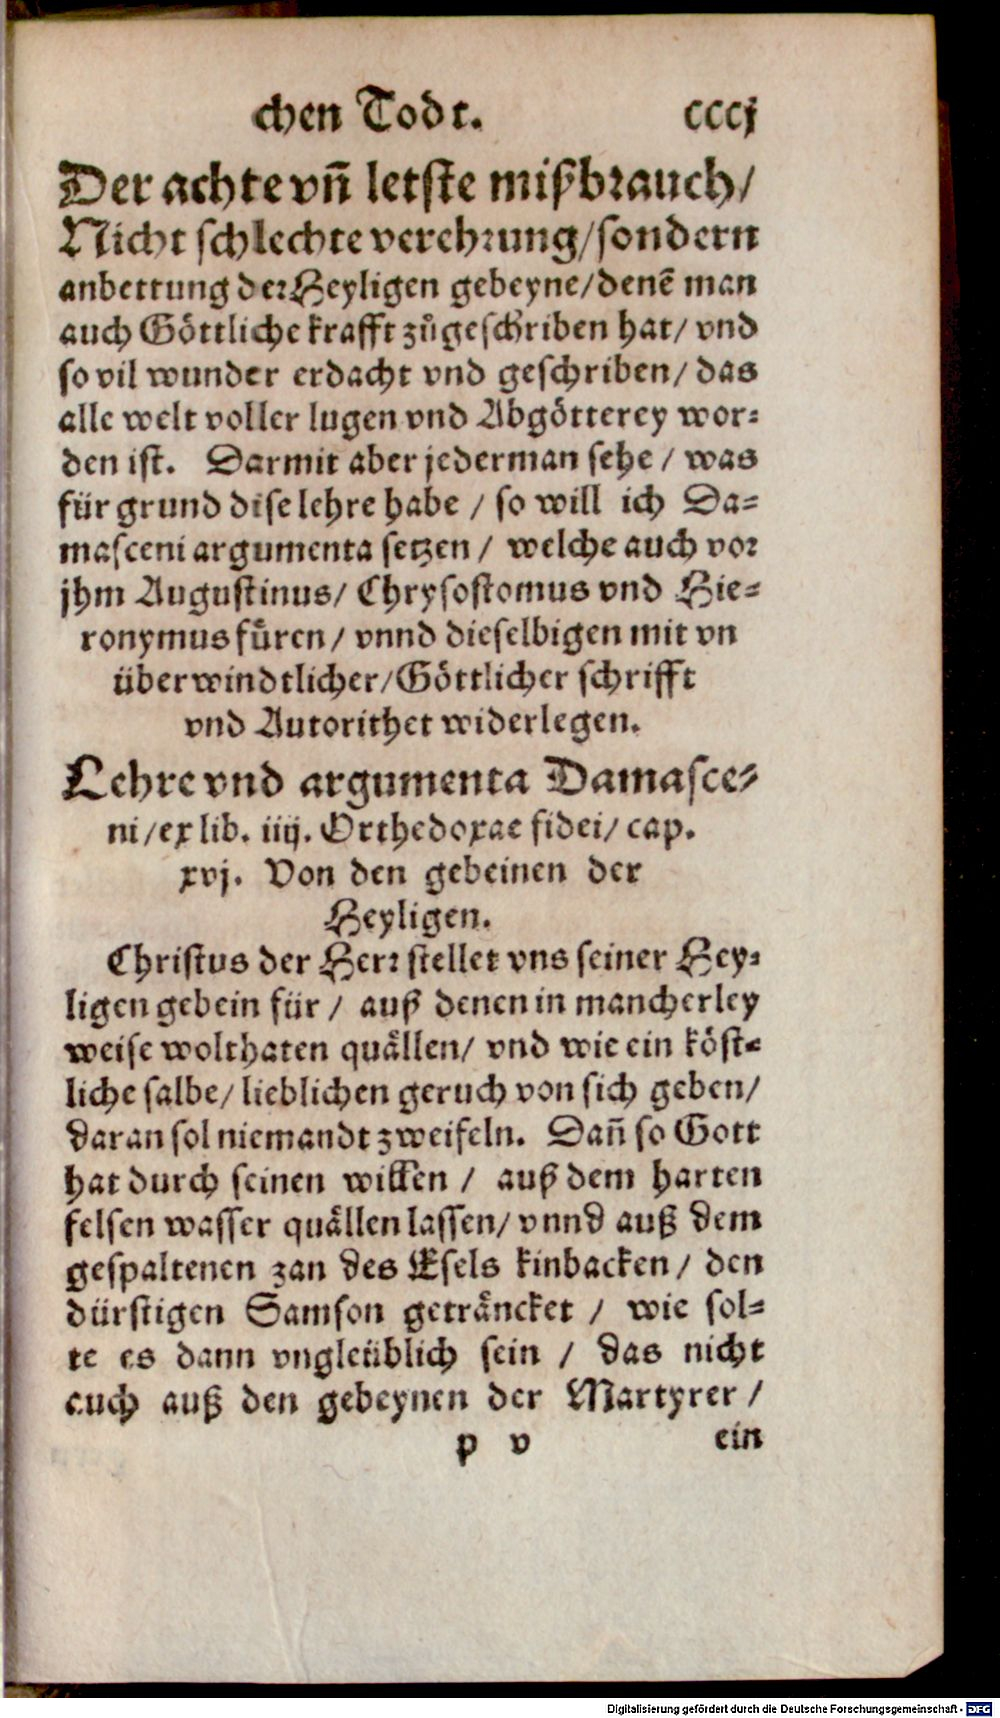 chen Todt. cccj
Der achte vñ letste mißbrauch/
Nicht schlechte verehrung/sondern
anbettung der Heyligen gebeyne/denẽ man
auch Göttliche krafft zůgeschriben hat/ vnd
so vil wunder erdacht vnd geschriben/ das
alle welt voller lugen vnd Abgötterey wor=
den ist. Darmit aber jederman sehe / was
für grund dise lehre habe / so will ich Da=
masceni argumenta setzen / welche auch vor
jhm Augustinus/ Chrysostomus vnd Hie=
ronymus fůren/ vnnd dieselbigen mit vn
überwindtlicher/Göttlicher schrifft
vnd Autorithet widerlegen.
Lehre vnd argumenta Damasce=
ni/ex lib. iiij. Orthedoxae fidei/ cap.
xvj. Von den gebeinen der
Heyligen.
Christus der Herr stellet vns seiner Hey=
ligen gebein für / auß denen in mancherley
weise wolthaten quällen/ vnd wie ein köst=
liche salbe/ lieblichen geruch von sich geben/
daran sol niemandt zweifeln. Dañ so Gott
hat durch seinen willen / auß dem harten
felsen wasser quällen lassen/ vnnd auß dem
gespaltenen zan des Esels kinbacken / den
dürstigen Samson geträncket / wie sol=
te es dann vngleüblich sein / das nicht
auch auß den gebeynen der Martyrer /
p v ein
Digitalisierung gefördert durch die Deutsche Forschungsgemeinschaft - DFG